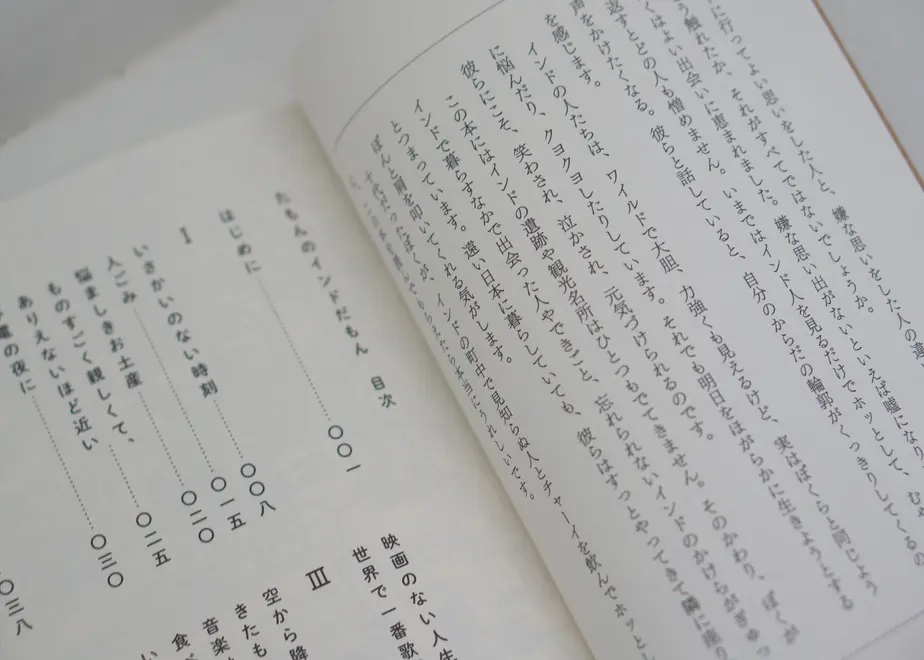 に行ってよい思いをした人と、嫌な思いをした人の違
う触れたか、それがすべてではないでしょうか。
くはよい出会いに恵まれました。嫌な思い出がないといえば嘘になり
返すとどの人も憎めません。いまではインド人を見るだけでホッとして、むや
声をかけたくなる。彼らと話していると、自分のからだの輪郭がくっきりしてくるの
を感じます。
インドの人たちは、ワイルドで大胆、力強くも見えるけど、実はぼくらと同じよう
に悩んだり、クヨクヨしたりしています。それでも明日をほがらかに生きようとする
彼らにこそ、笑わされ、泣かされ、元気づけられるのです。
この本にはインドの遺跡や観光名所はひとつもでてきません。そのかわり、ぼくが
インドで暮らすなかで出会った人やできごと、忘れられないインドのかけらがぎゅっ
とつまっています。遠い日本に暮らしていても、彼らはすっとやってきて隣に座り
ぽんと肩を叩いてくれる気がします。
十代だったぼくが、インドの町中で見知らぬ人とチャーイを飲んでホッとし
この本を読んでもらえたら本当にうれしいです。
たもんのインドだもん 目次
はじめに……〇〇一
Ⅰ
いさかいのない時刻……〇〇八
人ごみ……〇一五
悩ましきお土産……〇二〇
ものすごく親しくて、
ありえないほど近い……〇二五
電の夜に……〇三〇
〇三八
映画のない人生
世界で一番歌
Ⅲ
空から降
きたも
音楽
食
い